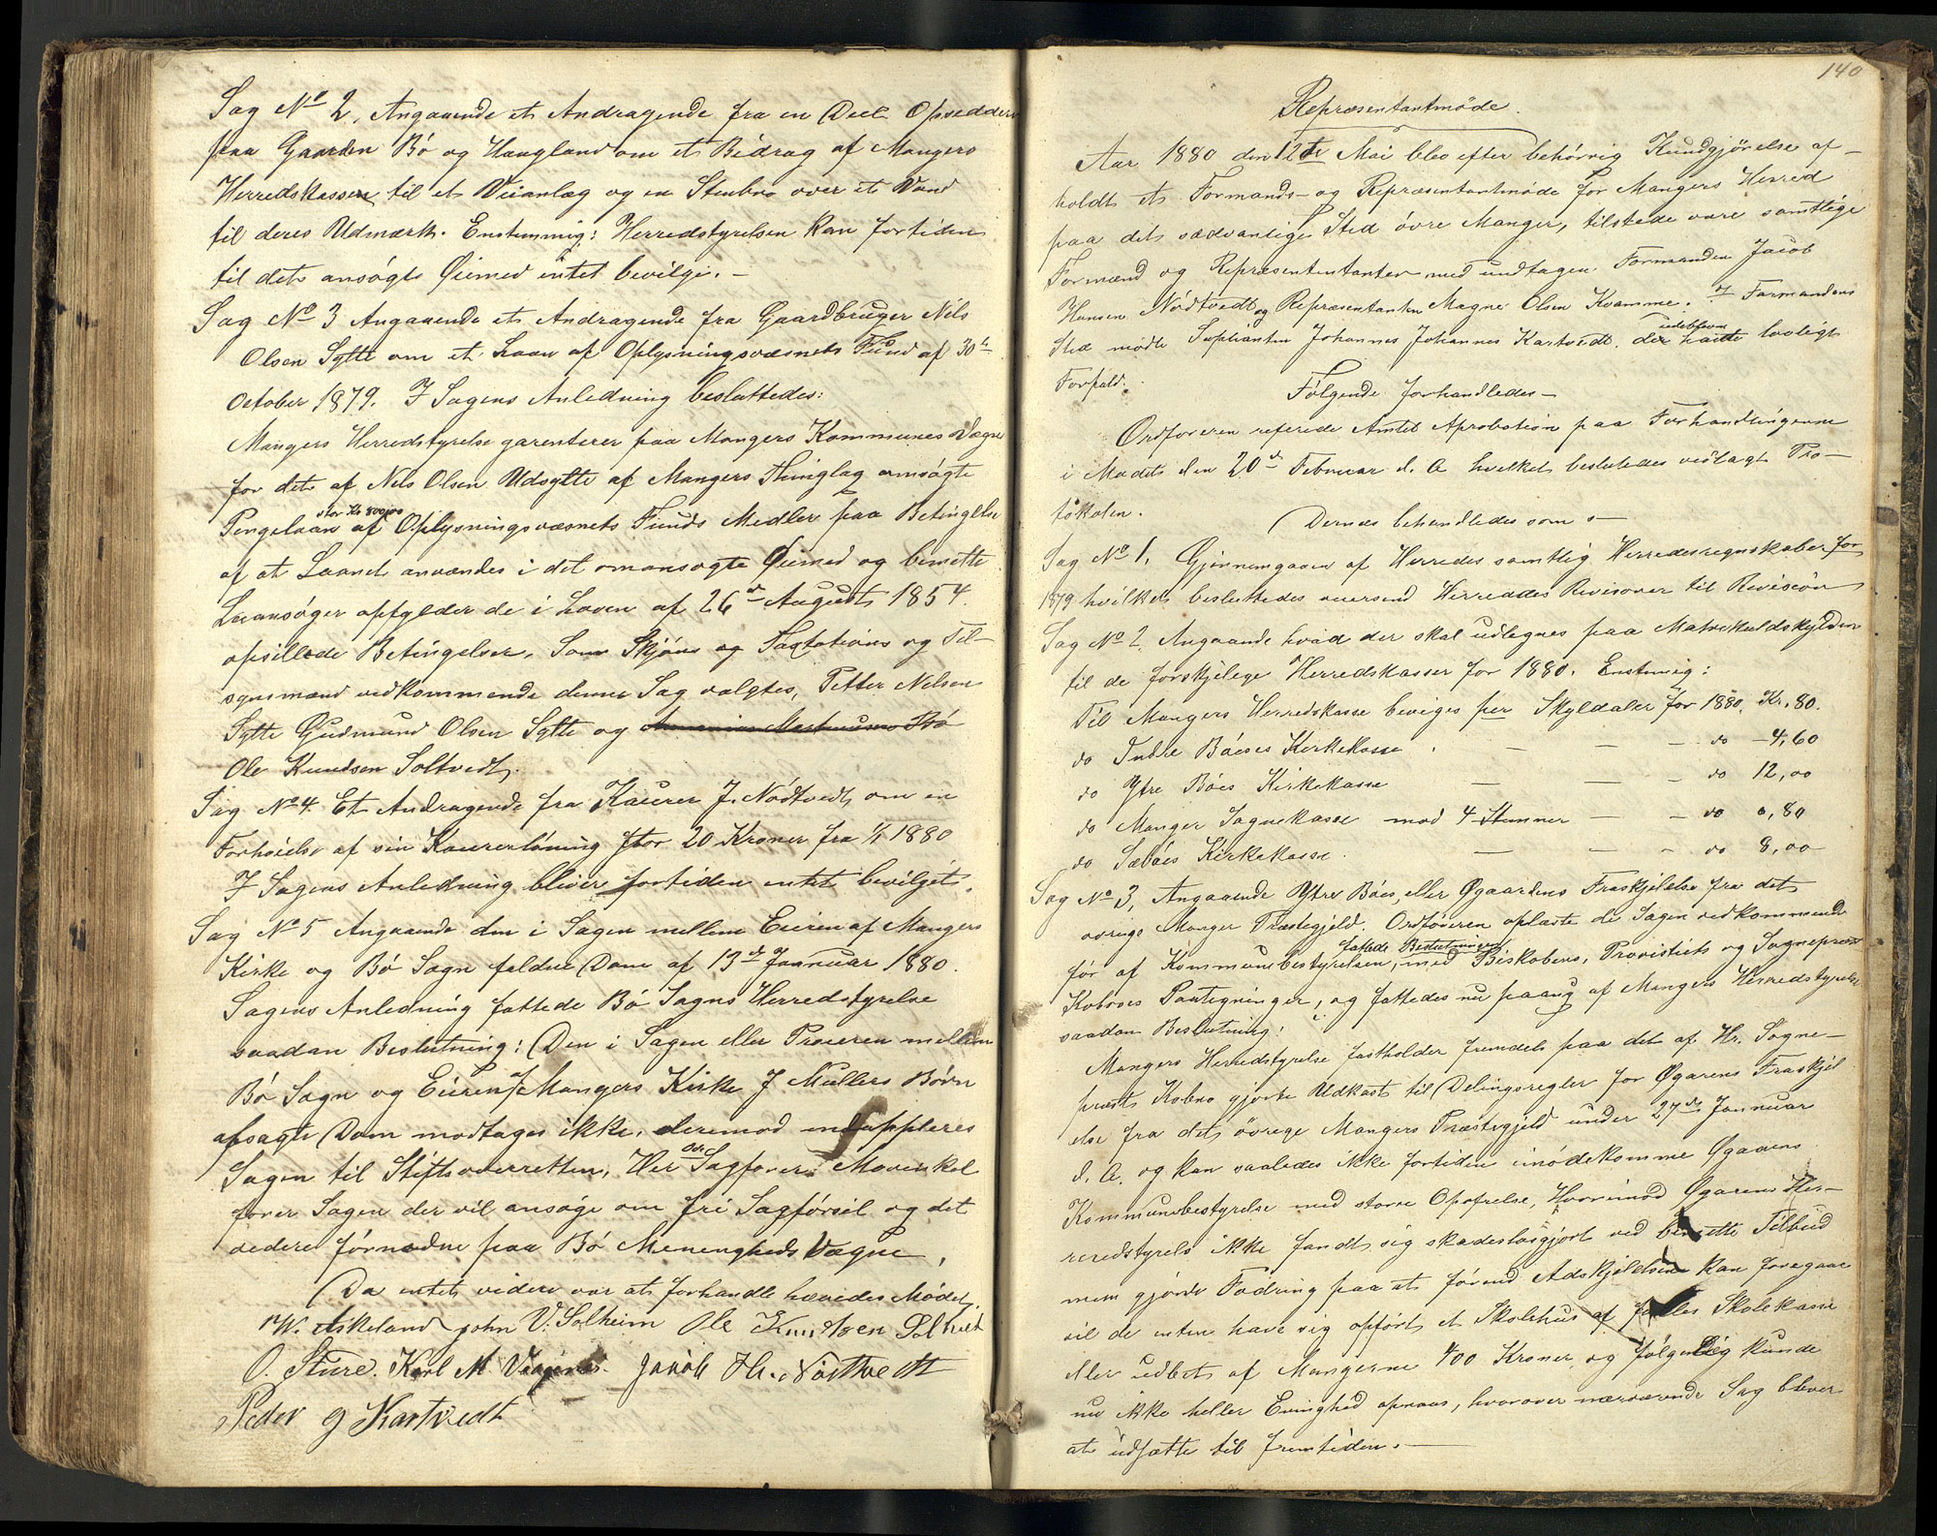 Sag No 2, Angaaende et Andragende fra en Deel Opsiddere
paa Gaarden Bö og Haugland om et Bidrag af Mangers
Herredskassen til et Veianlæg og en Stenbro over et Vand
til deres Udmærk. Enstemmig: Herredstyrelsen kan fortiden
til det ansögte Öiemed intet bevilge. –
Sag No 3 Angaaende et Andragende fra Gaardbruger Nils
Olsen Sylte om et Laan af Oplysningsvæsnets Fund af 30te
October 1879. I Sagens Anledning besluttedes:
Mangers Herredstyrelse garenterer paa Mangers Kommunes Vægne
for det af Nels Olsen Udsylte af Mangers Thinglag ansögte
stor Kr 800,00
Pengelaan af Oplysningsvæsnets Funds Medler paa Betingelse
af at Laanet anvændes i det omansøgte Öiemed og bemeldte
Laansöger opfylder de i Loven af 26de Augusts 1854
opstillede Betingelser. Som Skjöns og Taxtations og Til-
synsmænd vedkommende denne Sag valgtes, Petter Nelsen
Sylte Gudmund Olsen Sylte og
Ole Knudsen Soltvedt.
Sag No 4. Et Andragende fra Kaurer J. Nödtvedt om en
Forhöielse af sin Kaurerlöning stor 20 Kroner fra 1/1 1880
I Sagens Anledning bliver fortiden intet bevilget.
Sag No 5 Angaaende den i Sagen mellem Eieren af Mangers
Kirke og Bö Sogn faldne Dom af 13de Januar 1880.
Sagens Anledning fattede Bö Sogns Herredstyrelse
saadan Beslutning: Den i Sagen eller Proseren mellem
Bö Sogn og Eieren af Mangers Kirke J Müllers Börn
afsagte Dom modtages ikke, derimod indappleres
Sagen til Stiftsoverretten, Her Ovr Sagfører Movinkel
fører Sagen der vil ansøge om fri Sagförsel og det
videre förnødne paa Bö Menengheds Vægne,
Da intet videre var at forhandle hævedes Mödet.
W. Askeland John V. Solheim Ole Knutsen Soltvet
O. Sture. Karl M. Jakob H. Nöttvedt
Peder J Kartvedt
140
Repræsentantmöde.
Aar 1880 den 12te Mai blev efter behörrig Kundgjörelse af-
holdt et Formands- og Repræsentantmöde for Mangers Herred
paa det sædvanlige Sted övre Manger, tilstede vare samtlige
Formænd og Repræsententanter med undtagen Formanden Jacob
Hansen Nödtvedt og Repræsentanten Magne Olsen Kvamme. I Formandens
Sted mödte Supliantin Johannes Johannes Kartvedt. der hadde lovligt
Forfald.
Fölgende forhandledes –
Ordføreren referede Amtet Aprobation paa Forhandlingerne
i Mødet den 20de Februar d. A hvilket beslutedes vedlagt Pro-
tokolen.
Dernes behandledes som :
Sag No 1. Gjennemgaaen af Herredes samtlig Herredesregnskaber for
1879 hvilket besluttedes oversend Herreddes Revisorer til Revision
Sag No 2 Angaaende hvad der skal udlegnes paa Matrikuldskylden
til de forskjelege Herredskasser for 1880. Enstmig:
Til Mangers Herredskasse beviges per Skyldaler for 1880. Kr. 80.
do Indre Böes Kirkekasse – – – do – 4,60
do Ytre Böes Kirkekasse – – – do 12,00
do Manger Sognekasse mod 4 Stemmer – – do 0,80
do Sæböes Kirkekasse. – – – do 8,00
Sag No 3, Angaaende Ytre Böes, eller Øgaardens Fraskjelelse fra det
övrige Manger Præstegjeld. Ordföreren oplæste de Sagen vedkommende
fattede Beslutninger
för af Kommunebestyrelsen, med Biskobens, Provistiets og Sognepræst
Kobroes Paategninger, og fattedes nu paany af Mangers Herredstyrelse
saadan Beslutning:
Mangers Herredstyrelse fastholder fremdels paa det af Hr. Sogne-
præst Kobro gjorte Udkast til Delingsregler for Øgarens Fraskjel
else fra det övrege Mangers Præstegjeld under 27de Januar
d. A. og kan saaledes ikke fortiden imödekomme Øgarens
Kommunebestyrelse med större Opofrelse, Hvorimod Øgarens Her-
reredstyrels ikke fandt sig skadeslösgjort ved bemeldte Tilbud
men gjorde Fodring paa at förend Adskjelelsen kan foregaae
vil de enten have sig opfört et Skolehus af fælles Skolekasse
eller udbet af Mangerne 400 Kroner, og følgelig kunde
nu ikke heller Eninghed opnaaes, hvorover nærværende Sag blever
at udsætte til fremtiden. –